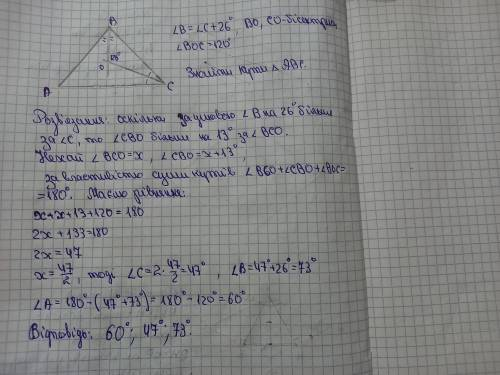 B
∠B=∠C+26°, BO, CO-бісектриси
∠BOC=120°
O
A
C
Знайти кути △ABC.
Розв'язання: оскільки за умовою ∠B на 26° більший
за ∠C, то ∠CBO більший на 13° за ∠BCO.
Нехай ∠BCO=x, ∠CBO=x+13°,
за властивістю суми кутів ∠BCO+∠CBO+∠BOC=
=180°. Маємо рівняння:
x+x+13+120=180
2x+133=180
2x=47
x=47/2, тоді ∠C=2·47/2=47°, ∠B=47°+26°=73°
∠A=180°-(47°+73°)=180°-120°=60°
Відповідь: 60°; 47°; 73°.